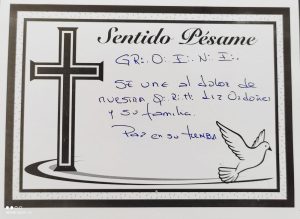 Sentido Pésame
GR∴ O∴ I∴ N∴ I∴
SE UNE al dolor de
NUESTRA Q∴ R∴H∴ Liz Ordoñez
y su familia.
Paz en su tumba